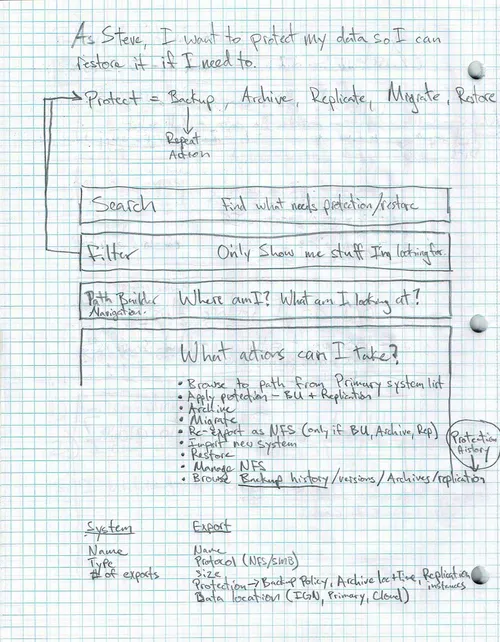 As Steve, I want to protect my data so I can
restore it if I need to.
Protect = Backup, Archive, Replicate, Migrate, Restore
Repeat
Action
Search Find what needs protection/restore
Filter Only Show me stuff I'm looking for.
Path Builder Where am I? What am I looking at?
Navigation.
What actions can I take?
• Browse to path from Primary system list
• Apply protection - BU + Replication
• Archive
• Migrate
• Re-Export as NFS (only if BU, Archive, Rep)
• Import new system
• Restore
• Manage NFS
• Browse Backup history/versions/Archives/replication
Protection
History
System Export
Name Name
Type Protocol (NFS/SMB)
# of exports Size
Protection → Backup Policy, Archive loc+Time, Replication instances
Data location (IGN, Primary, Cloud)